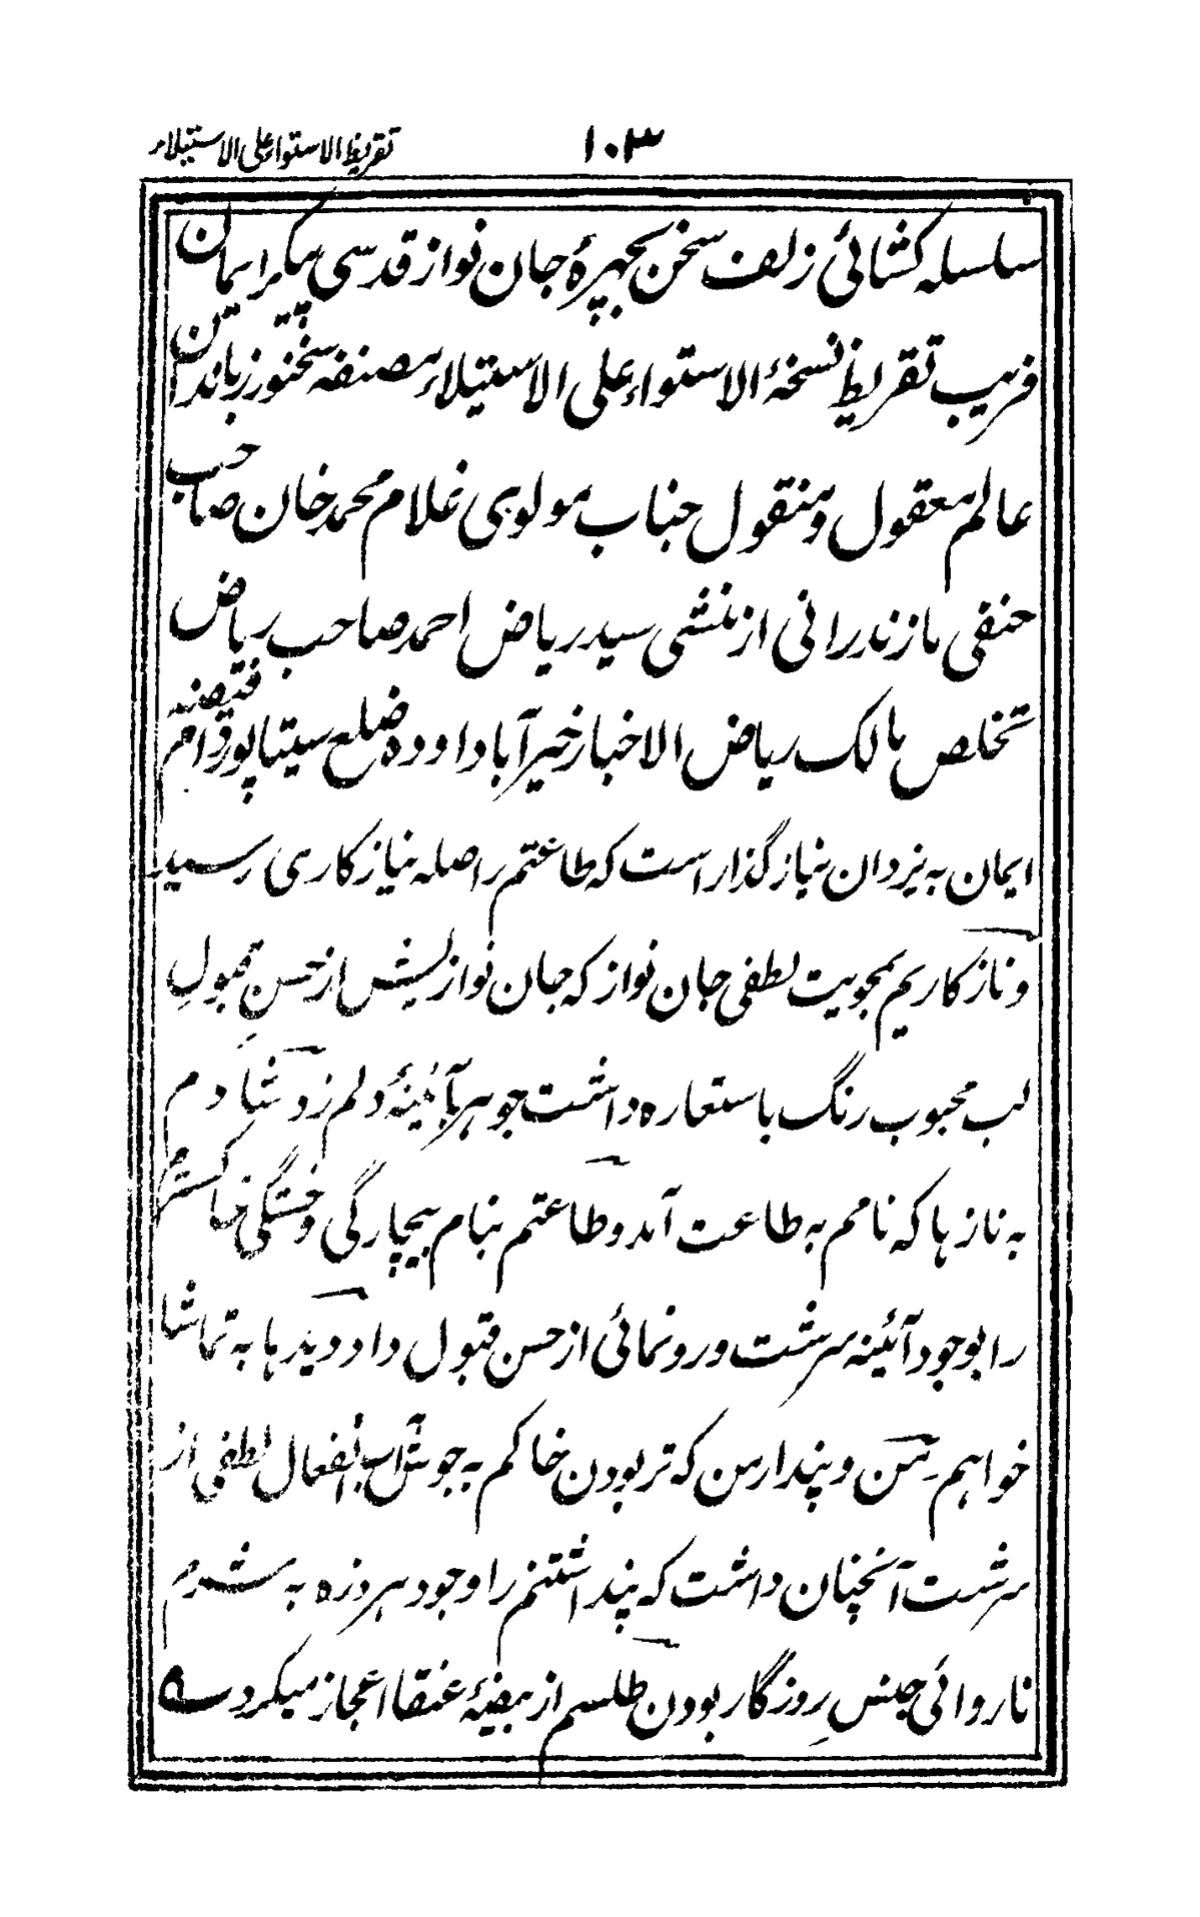 تقریظ الاستواء علی الاستیلاء
۱۰۳
سلسله کشائی زلف سخن بچهرهٔ جان نواز قدسی پیکر ایمان
فریب تقریظ نسخهٔ الاستواء علی الاستیلاء مصنفه سخنور زباندان
عالم معقول و منقول جناب مولوی غلام محمد خان صاحب
حنفی مازندرانی از منشی سید ریاض احمد صاحب ریاض
تخلص مالک ریاض الاخبار خیرآباد اوده ضلع سیتاپور
ایمان به یزدان نیاز گذار است که طاعتم را صله نیاز کاری رسید
و ناز کاریم بمحبوبیت لطفی جان نواز که جان نوازیش از حسن قبول
لب محبوب رنگ باستعاره داشت جوهر بآئینهٔ دلم زد شادم
به نازها که نامم به طاعت آمد و طاعتم بنام بیچارگی و خستگی خاکستر
را بوجود آئینه سرشت و رونمائی از حسن قبول داد دیدها به تماشا
خواهم من و پندار من که تر بودن خاکم به جوش آب انفعال لطفی از
سرشت آنچنان داشت که پنداشتنم را وجود هر ذره به شرم
ناروائی جنس روزگار بودن طلسم از بیضهٔ عنقا اعجاز میکرد ے